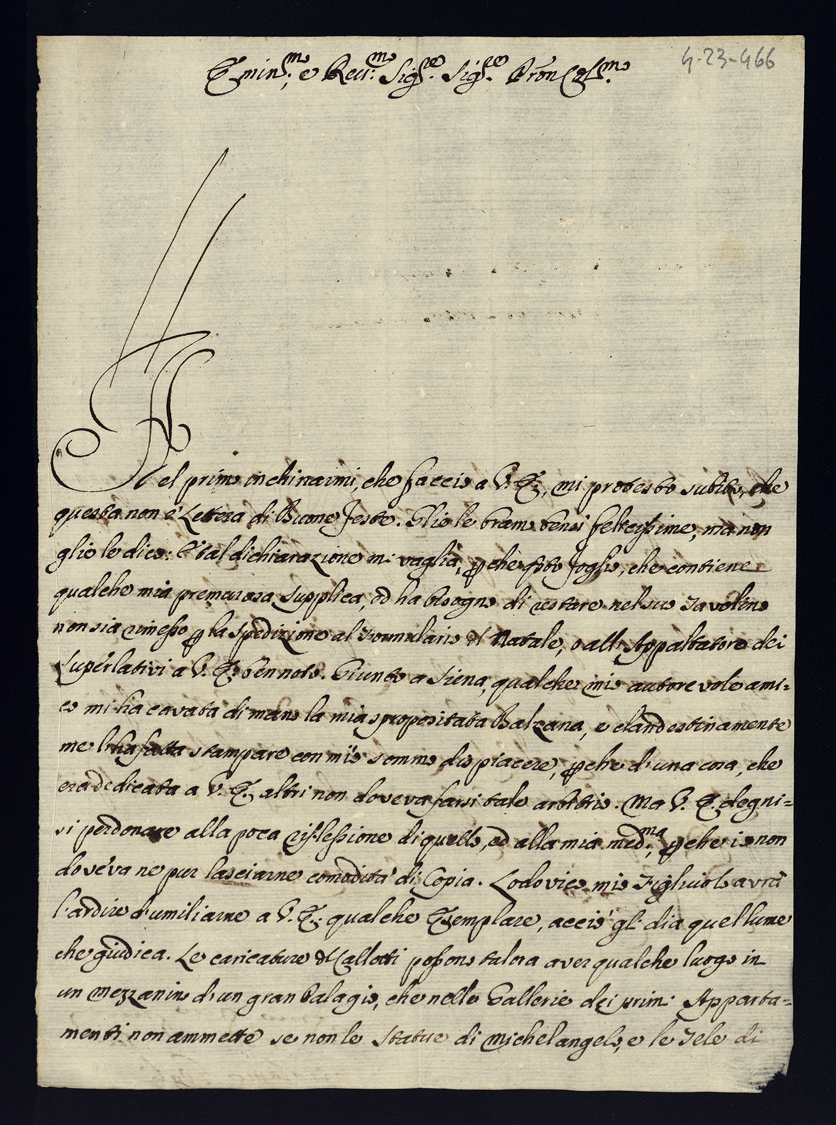 4-23-466
Emin.mo, e Reu.mo Sig.re Sig.re Pron Col.mo
Nel primo inchinarmi, che faccio a V. E., mi protesto subito, che
questa non è Lettera di Buone feste. Glie le bramo bensì felicissime, ma non
glie le dico: E tal dichiarazione mi vaglia, pchè qsto foglio, che contiene
qualche mia premurosa supplica, ed ha bisogno di restare nel suo Tavolino
non sia rimesso p la spedizione al Formulario di Natale, o all'Appaltatore dei
Superlativi a V. E. ben noto. Giunto a Siena, qualche mio autorevole ami=
co mi ha cavata di mano la mia spropositata Balzana, e clandestinamente
me l'ha fatta stampare con mio sommo dispiacere, pchè d'una cosa, che
era dedicata a V. E. altri non doveva farsi tale arbitrio. Ma V. E. degni=
si perdonare alla poca riflessione di quello, ed alla mia med.ma, pchè io non
doveva ne pur lasciarne comodità di Copia. Lodovico mio Figliuolo avrà
l'ardire d'umiliarne a V. E. qualche Esemplare, acciò gli dia quel lume
che giudica. Le caricature di Callotti possono talora aver qualche luogo in
un mezzanino di un gran Palagio, che nelle Gallerie dei primi Apparta=
menti non ammette se non le Statue di Michelangelo, e le Tele di